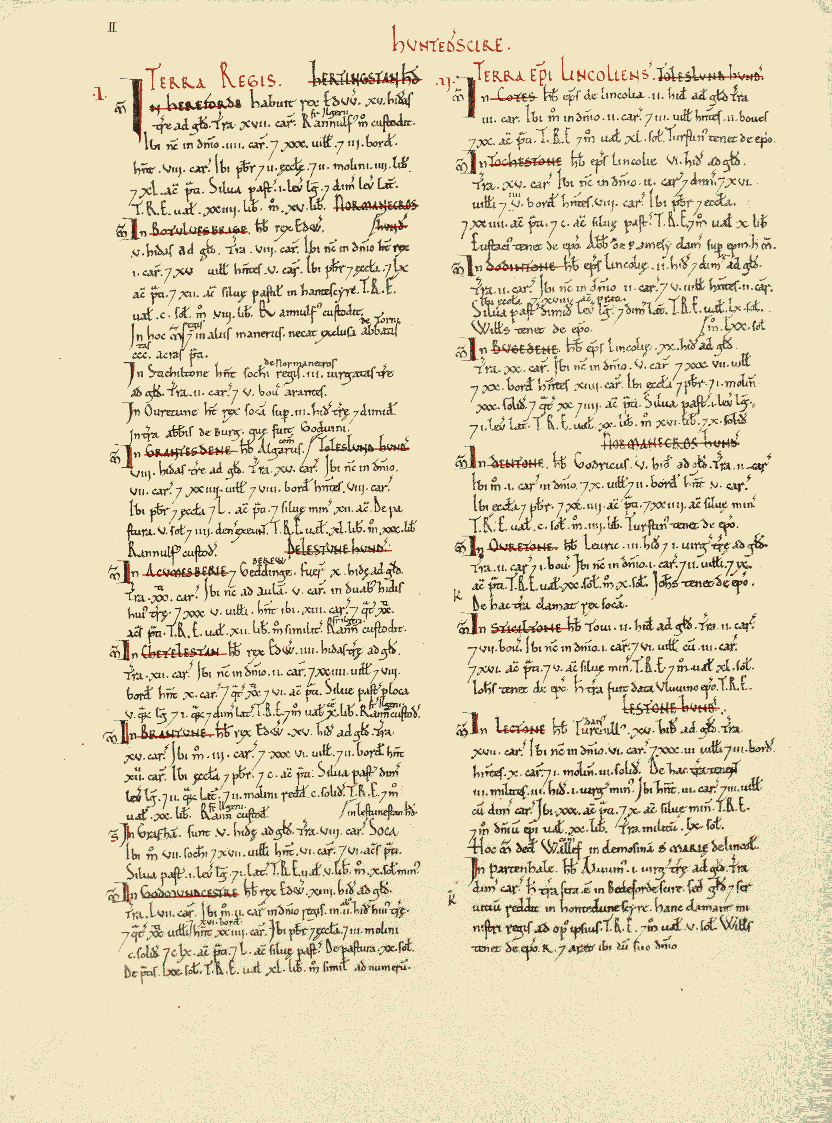 II
HUNTEDSCIRE.
.I. TERRA REGIS. HERTINGSTAN HD
IN HEREFORDE habuit rex Edw. xv. hidas
tre ad gld. Tra. xvii. car. Rannulf' m custodit.
Ibi nc in dnio. iiii. car. 7 xxx. uill' 7 iii. bord.
hnt. viii. car. Ibi pbr 7 ii. eccle. 7 ii. molini. iiii. lib.
7 xl. ac pti. Silua past. i. lev lg. 7 dim lev lat.
T.R.E. ual. xxiiii. lib. m. xv. lib. NORMANECROS
M In BOTULVESBRIGE. hb rex Edw. HUND'
v. hidas ad gld. Tra. viii. car. Ibi nc in dnio ht rex
i. car. 7 xv uill hntes. v. car. Ibi pbr 7 eccla. 7 lx
ac pti. 7 xii. ac silue pastil in hantescyre. T.R.E.
ual. c. sol. m viii. lib. Rannulf' custodit.
In hoc M regis 7 in aliis maneriis. necat exclusa abbatis de Torni
ccc. acras pti.
In Stichiltone hnt sochi regis. iii. virgatas tre de Normancros
ad gld. Tra. ii. car. 7 v. bou arantes.
In Ouretune ht rex soca sup. iii. hid tre 7 dimid.
in tra abbis de Burg. que fuit Goduini.
M In GRANTESDENE hb Algarus com. TOLESLUND HUND'
viii. hidas tre ad gld. Tra. xv. car. Ibi nc in dnio.
vii. car. 7 xxiiii. uill' 7 viii. bord hntes. viii. car.
Ibi pbr 7 eccla 7 L. ac pti 7 silue min' xii. ac. De pa
stura. v. sol 7 iiii. den exeunt. T.R.E. ual. xl. lib. m xxx. lib
Rannulf' custod. DELESTUNE HUND'
M In ACUMESBERIE 7 Geddinge. fuer x. hide ad gld. BEREW'
Tra. xx. car. Ibi nc ad aula. v. car in duab' hidis
hui' tre. 7 xxx. v. uilli. hnt ibi. xiii. car. 7 qt xx.
acs pti. T.R.E. ual. xii. lib. m similit. Rann' fr Ilgeri custodit.
M In CHETELESTAN hb rex Edw. iiii. hidas tre ad gld.
Tra. xii. car. Ibi nc in dnio. ii. car. 7 xxiiii. uill' 7 viii.
bord hnt. x. car 7 qt xx 7 vi. ac pti. Silue past' p loca
v. qc lg 7 i. qc 7 dim lat. T.R.E. 7 m ual x. lib. Rann' fr Ilgeri custod.
M In BRANTUNE. hb rex Edw. xv. hid ad gld. Tra.
xv. car. Ibi m. iii. car. 7 xxx vi. uill' 7 ii. bord hnt
xiii. car. Ibi eccla 7 pbr. 7 c. ac pti. Silua past' dim
lev lg. 7 ii. qc lat. 7 ii. molini redd. c. solid. T.R.E. 7 m
ual. xx. lib. Rann' fr Ilgeri custod. in Lestunestan hd.
S In Grafha. sunt v. hide ad gld. Tra. viii. car. Soca
Ibi m vii. sochi 7 xvii. uilli hnt. vi. car. 7 vi. acs pti.
Silua past. i. lev lg. 7 i. lat. T.R.E. ual. v. lib. m x. sol min'
M In GODMUNDCESTRE hb rex Edw. xiiii. hid ad gld.
Tra. Lvii. car. Ibi m. ii. car in dnio regis. in ii. hid hui' tre.
7 qt xx uill' 7 xvi. bord. hnt xxiiii. car. Ibi pbr 7 eccla. 7 iii. molini
c. solid 7 clx. ac pti. 7 L. ac silue past. De pastura. xx. sol.
De ptis. lxx. sol. T.R.E. ual xl. lib. m simil ad numeru.
.II. TERRA EPI LINCOLIENS'. TOLESLUND HUND'.
M In COTES hb eps de lincolia. ii. hid ad gld Tra
iii. car. Ibi m in dnio. ii. car. 7 iii. uill' hntes. ii. boues
7 xx. ac pti. T.R.E 7 m ual xl. sol. Turstin' tenet de epo.
M In TOCHESTONE hb eps Lincolie vi. hid ad gld.
Tra. xv. car. Ibi nc in dnio. ii. car 7 dim. 7 xvi.
uill' 7 v. bord. hntes. viii. car. Ibi pbr 7 eccla.
7 xxiiii. ac pti. 7 c. ac silue past. T.R.E 7 m ual x. lib
Eustaci' tenet de epo. Abb de Ramesy clam sup epm h M.
M In DODINTONE hb eps Lincolie. ii. hid 7 dim ad gld.
Tra. ii. car. Ibi nc in dnio. i. car. 7 v. uill' hntes. ii. car.
Ibi eccla. 7 xviii. ac prati.
Silua past' dimid lev lg. 7 dim lat. T.R.E. ual. lx. sol.
Wills tenet de epo. m. lxx. sol
M In BUGEDENE hb eps Lincolie. xx. hid ad gld.
Tra. xx. car. Ibi nc in dnio. v. car. 7 xxx. vii. uill'
7 xx. bord hntes. xiiii. car. Ibi eccla 7 pbr. 7 i. molin
xxx. solid. 7 qt xx 7 iiii. ac pti. Silua past. i. lev lg.
7 i. lev lat. T.R.E. ual. xx. lib. m xvi. lib. 7 x. solid
NORMANECROS HUND'
M In DENTONE. hb Godricus. v. hid ad gld. Tra. ii. car
Ibi m. i. car in dnio. 7 x. uill' 7 ii. bord hnt v. car.
Ibi eccla 7 pbr. 7 xx. iiii. ac pti. 7 xxiiii. ac silue min'
T.R.E. ual. c. sol. m. iiii. lib. Turstin' tenet de epo.
M In OURETONE. hb Leuric. iii. hid 7 i. virg tre ad gld.
Tra. ii. car 7 i. bou. Ibi nc in dnio. i. car. 7 ii. uill' 7 ix.
ac pti. T.R.E. ual. xx. sol. m x. sol. Johs tenet de epo.
K De hac tra clamat rex soca.
M In STICILTONE hb Toui. ii. hid ad gld. Tra. ii. car.
7 vii. bou. Ibi nc in dnio. i. car. 7 vi. uill' cu. iii. car.
7 xvi. ac pti. 7 v. ac silue min. T.R.E. 7 m ual xl. sol.
Johs tenet de epo. H tra fuit data Vluuino epo. T.R.E.
LESTONE HUND'.
M In LECTONE hb Turchill' dan'. xv. hid ad gld. Tra
xvii. car. Ibi nc in dnio. vi. car 7 xxx. iii uilli 7 iii. bord
hntes. x. car. 7 i. molin. iii. solid. De hac tra tenent
iii. milites. iii. hid. i. virg min'. Ibi hnt. iii. car. 7 iii. uill'
cu dim car. Ibi. xxx. ac pti. 7 x. ac silue min. T.R.E.
7 m dniu epi ual. xx. lib. Tra militu. lx. sol.
Hoc M ded Wallef in elemosina S MARIE de lincol.
In Partenhale. hb Aluuin. i. virg tre ad gld. Tra
dim car. H tra sita e in Bedefordescire. sed gld 7 ser
K uitiu reddit in hontedunescyre. Hanc clamant mi
nistri regis ad op' ipsius. T.R.E. 7 m ual. v. sol. Wills
tenet de epo. R. 7 arat ibi cu suo dnio